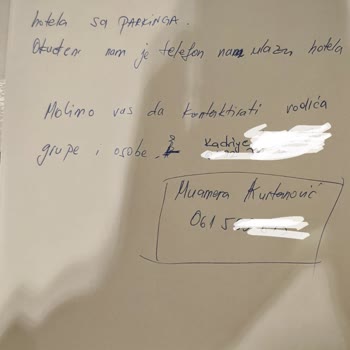 hotela sa PARKINGA.
Otuđen nam je telefon na ulazu hotela
Molimo vas da kontaktirati vodiča
grupe i osobe. Kadrije
Muamera Kurtanović
061 5